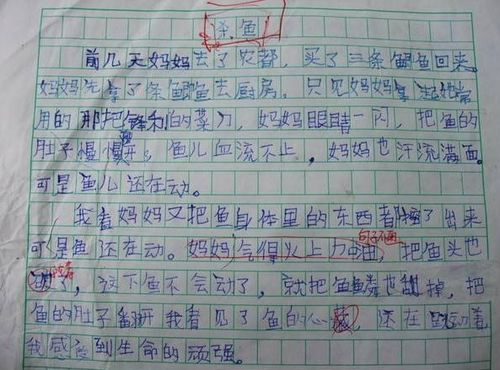 杀鱼
前几天妈妈去了农都,买了三条鲫鱼回来。
妈妈先拿了条鲫鱼去厨房。只见妈妈拿起她常
用的那把锋利的菜刀,妈妈眼睛一闪,把鱼的
肚子慢慢开,鱼儿血流不止,妈妈也汗流满面。
可是鱼儿还在动。
我看妈妈又把鱼身体里的东西都掏了出来
可是鱼还在动。妈妈气得火上加油,把鱼头也
了,这下鱼不会动了,就把鱼鳞也刮掉,把
鱼的肚子翻开我看见了鱼的心脏,还在跳动着,
我感到生命的顽强。